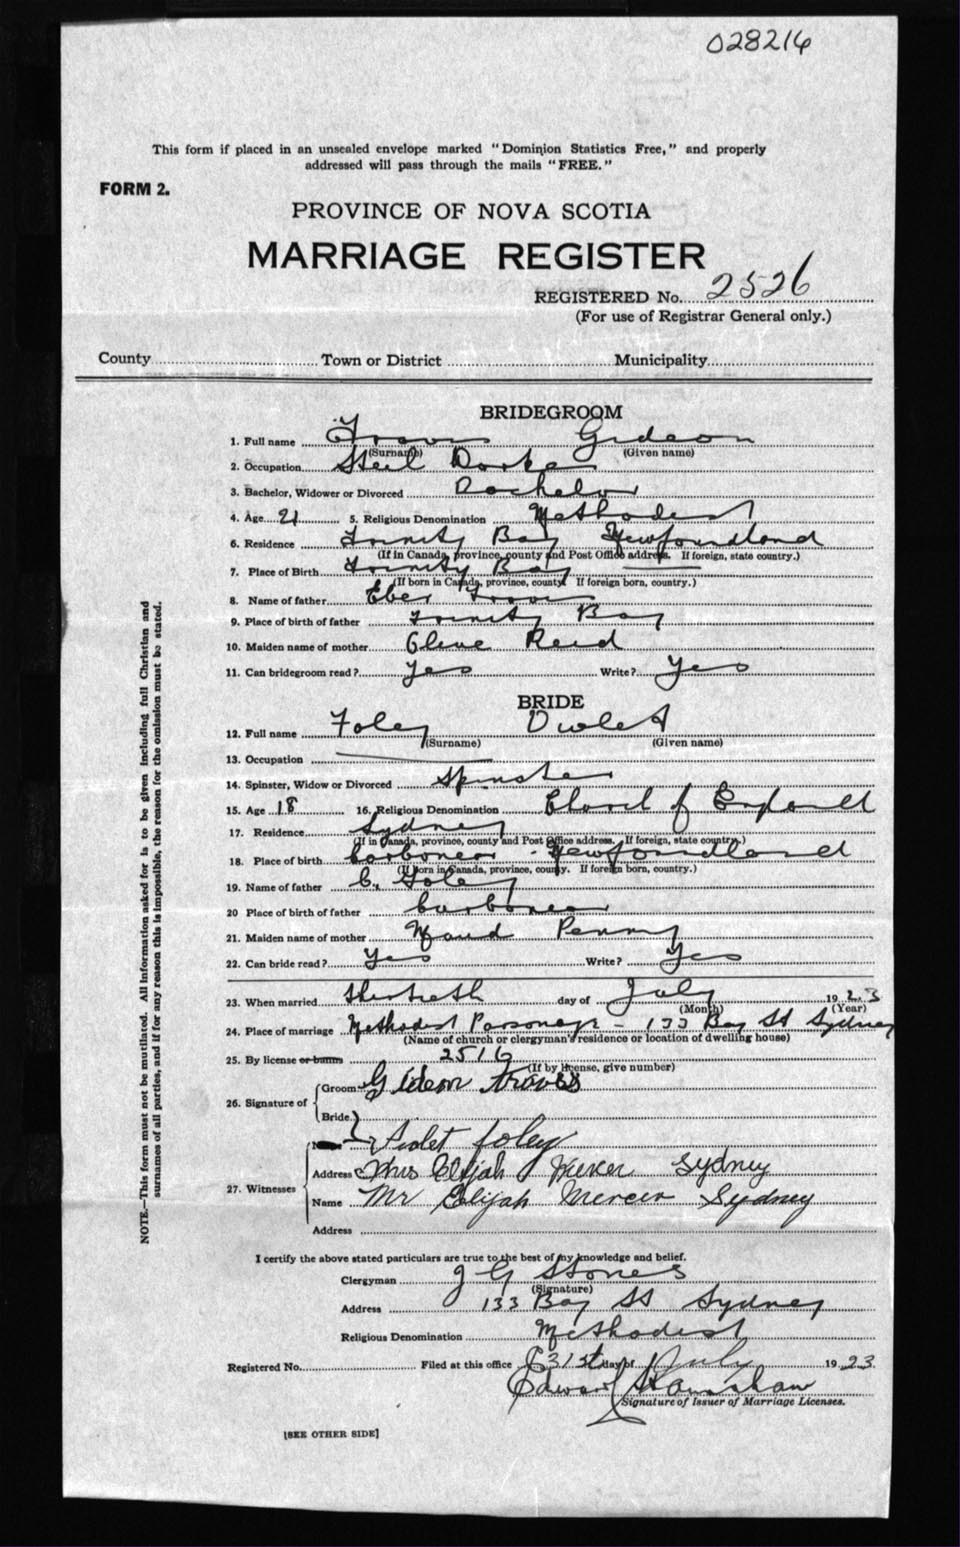 028216
This form if placed in an unsealed envelope marked "Dominion Statistics Free," and properly
addressed will pass through the mails "FREE."
FORM 2.
PROVINCE OF NOVA SCOTIA
MARRIAGE REGISTER
REGISTERED No. 2526
(For use of Registrar General only.)
County Town or District Municipality
BRIDEGROOM
1. Full name Gideon
(Surname) (Given name)
2. Occupation Steel Worker
3. Bachelor, Widower or Divorced Bachelor
4. Age 21 5. Religious Denomination Methodist
6. Residence Trinity Bay Newfoundland
(If in Canada, province, county and Post Office address. If foreign, state country.)
7. Place of Birth Trinity Bay
(If born in Canada, province, county. If foreign born, country.)
8. Name of father Eber
9. Place of birth of father Trinity Bay
10. Maiden name of mother Reid
11. Can bridegroom read? Yes Write? Yes
BRIDE
12. Full name Foley Violet
(Surname) (Given name)
13. Occupation
14. Spinster, Widow or Divorced Spinster
15. Age 18 16. Religious Denomination Church of England
17. Residence Sydney
(If in Canada, province, county and Post Office address. If foreign, state country.)
18. Place of birth Carbonear - Newfoundland
(If born in Canada, province, county. If foreign born, country.)
19. Name of father C. Foley
20 Place of birth of father Carbonear
21. Maiden name of mother Maud Penny
22. Can bride read? Yes Write? Yes
23. When married thirtieth day of July 1923
(Month) (Year)
24. Place of marriage Methodist Parsonage - 133 Bay St Sydney
(Name of church or clergyman's residence or location of dwelling house)
25. By license or banns 2516
(If by license, give number)
26. Signature of
Groom Gideon
Bride
Violet Foley
27. Witnesses
Address Mrs Elijah Sydney
Name Mr Elijah Mercer Sydney
Address
I certify the above stated particulars are true to the best of my knowledge and belief.
Clergyman J G Stones
(Signature)
Address 133 Bay St Sydney
Religious Denomination Methodist
Registered No. Filed at this office 31st day of July 1923
Edward
Signature of Issuer of Marriage Licenses.
[SEE OTHER SIDE]
NOTE.—This form must not be mutilated. All information asked for is to be given including full Christian and
surnames of all parties, and if for any reason this is impossible, the reason for the omission must be stated.